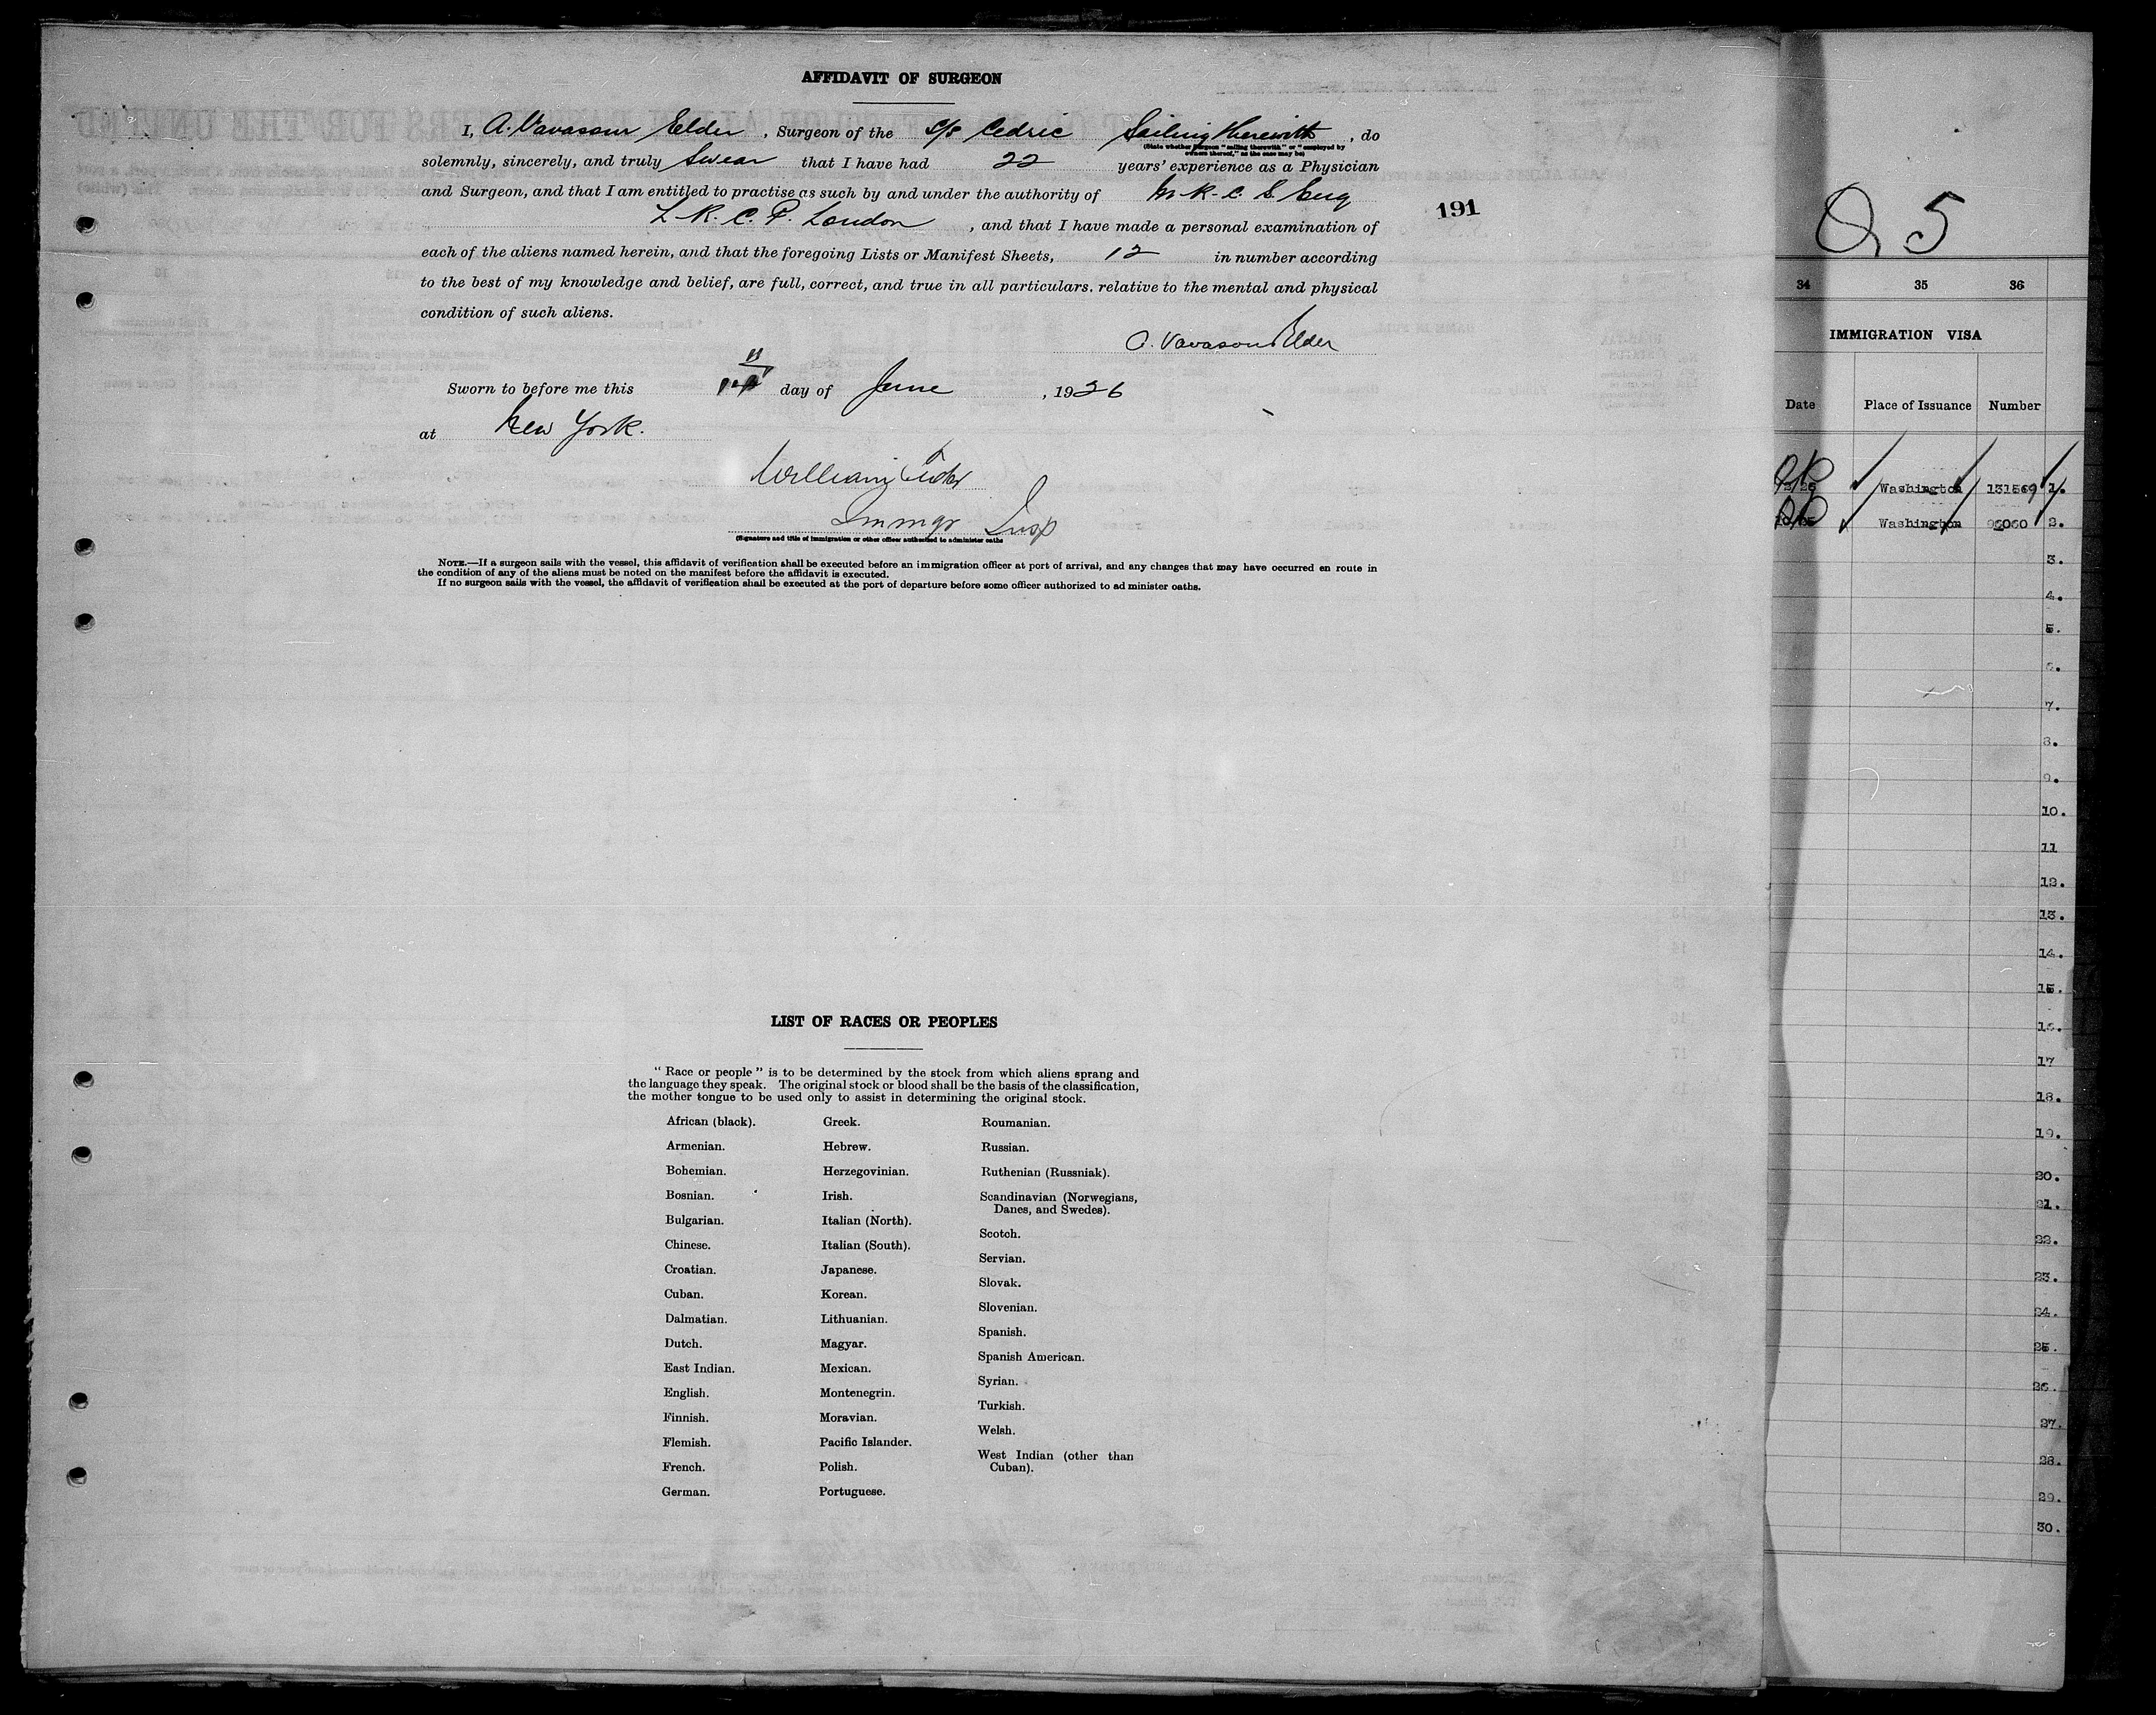 AFFIDAVIT OF SURGEON
I, A. Vavasour Elder, Surgeon of the S/S Cedric Sailing therewith, do
(State whether Surgeon "sailing therewith" or "employed by
owners thereof," as the case may be)
solemnly, sincerely, and truly Swear that I have had 22 years' experience as a Physician
and Surgeon, and that I am entitled to practise as such by and under the authority of M.R.C.S. Eng
L.R.C.P. London, and that I have made a personal examination of
each of the aliens named herein, and that the foregoing Lists or Manifest Sheets, 12 in number according
to the best of my knowledge and belief, are full, correct, and true in all particulars. relative to the mental and physical
condition of such aliens.
A. Vavasour Elder
Sworn to before me this day of June, 1926
at New York.
William
Immgr Insp
(Signature and title of immigration or other officer authorized to administer oaths
NOTE.—If a surgeon sails with the vessel, this affidavit of verification shall be executed before an immigration officer at port of arrival, and any changes that may have occurred en route in
the condition of any of the aliens must be noted on the manifest before the affidavit is executed.
If no surgeon sails with the vessel, the affidavit of verification shall be executed at the port of departure before some officer authorized to ad minister oaths.
191
LIST OF RACES OR PEOPLES
"Race or people" is to be determined by the stock from which aliens sprang and
the language they speak. The original stock or blood shall be the basis of the classification,
the mother tongue to be used only to assist in determining the original stock.
African (black).
Armenian.
Bohemian.
Bosnian.
Bulgarian.
Chinese.
Croatian.
Cuban.
Dalmatian.
Dutch.
East Indian.
English.
Finnish.
Flemish.
French.
German.
Greek.
Hebrew.
Herzegovinian.
Irish.
Italian (North).
Italian (South).
Japanese.
Korean.
Lithuanian.
Magyar.
Mexican.
Montenegrin.
Moravian.
Pacific Islander.
Polish.
Portuguese.
Roumanian.
Russian.
Ruthenian (Russniak).
Scandinavian (Norwegians,
Danes, and Swedes).
Scotch.
Servian.
Slovak.
Slovenian.
Spanish.
Spanish American.
Syrian.
Turkish.
Welsh.
West Indian (other than
Cuban).
5
34 35 36
IMMIGRATION VISA
Date Place of Issuance Number
Washington 1.
Washington 2.
3.
4.
5.
6.
7.
8.
9.
10.
11
12.
13.
14.
15.
16.
17
18.
19.
20.
21.
22.
23.
24.
25.
26.
27.
28.
29.
30.